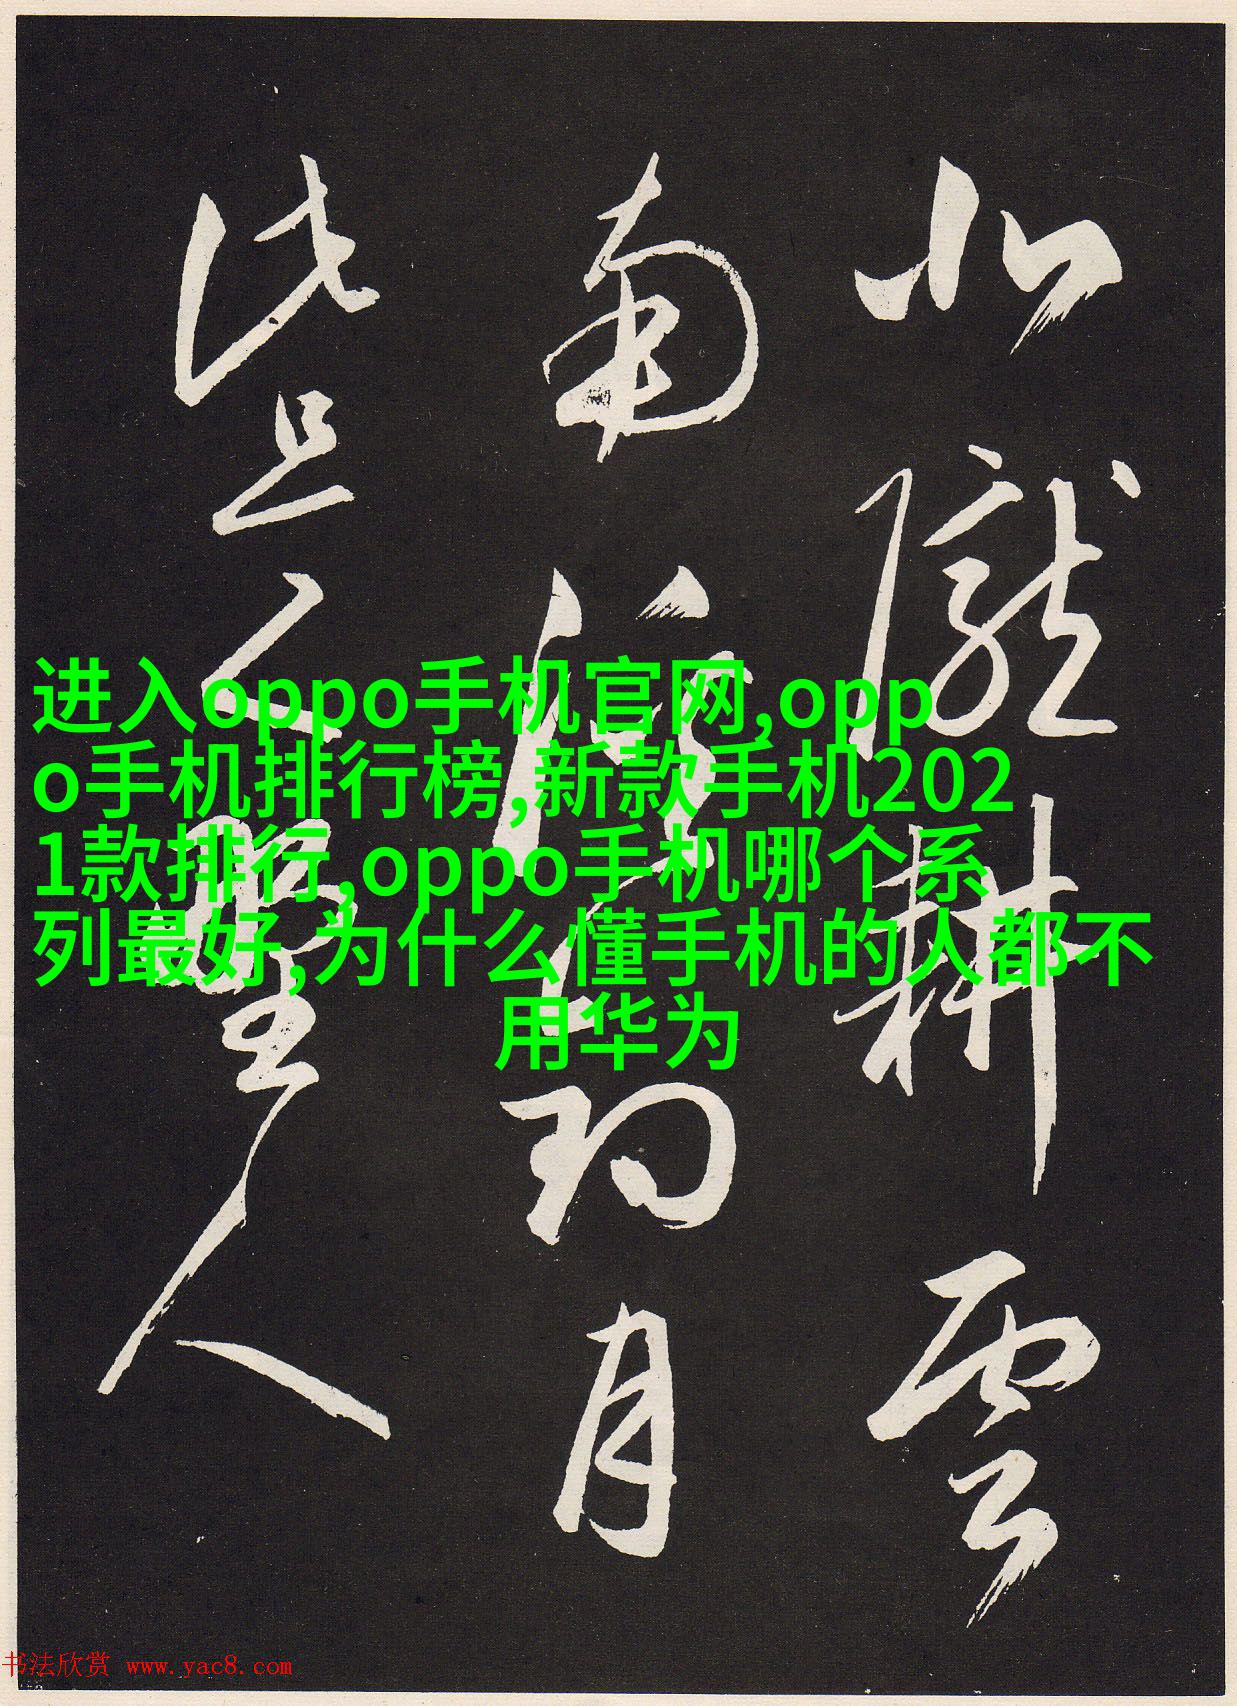 北隴耕雲
南溪釣月
此是野人
进入oppo手机官网,opp
o手机排行榜,新款手机202
1款排行,oppo手机哪个系
列最好,为什么懂手机的人都不
用华为
书法欣赏 www.yac8.com